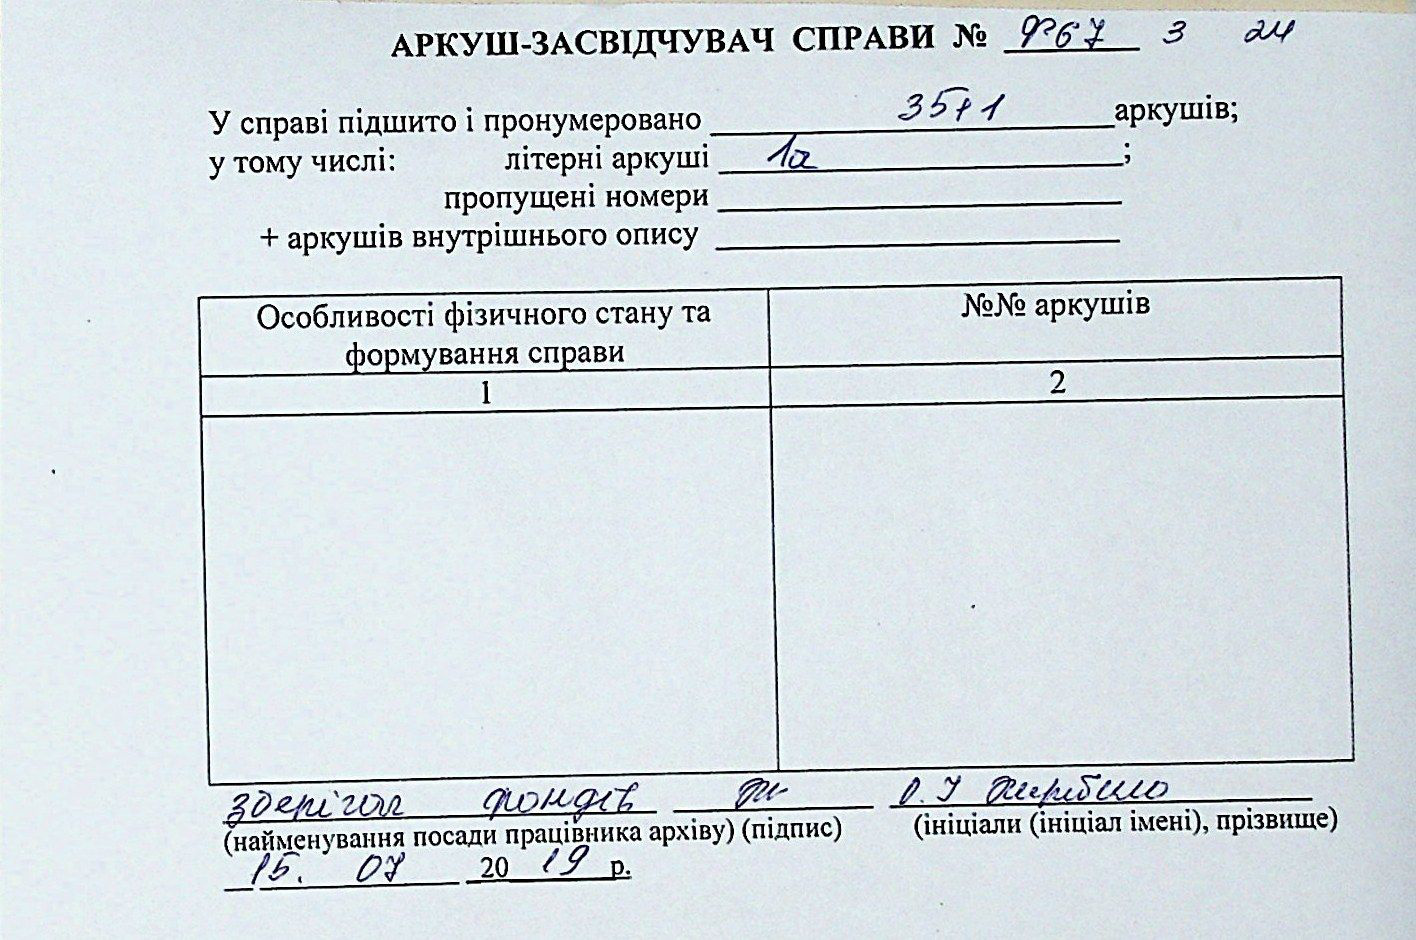 АРКУШ-ЗАСВІДЧУВАЧ СПРАВИ № Р967 3 24
У справі підшито і пронумеровано 35+1 аркушів;
у тому числі: літерні аркуші 1а ;
пропущені номери
+ аркушів внутрішнього опису
Особливості фізичного стану та
формування справи
№№ аркушів
1 2
зберігач фондів О.І
(найменування посади працівника архіву) (підпис) (ініціали (ініціал імені), прізвище)
15. 07 2019 р.